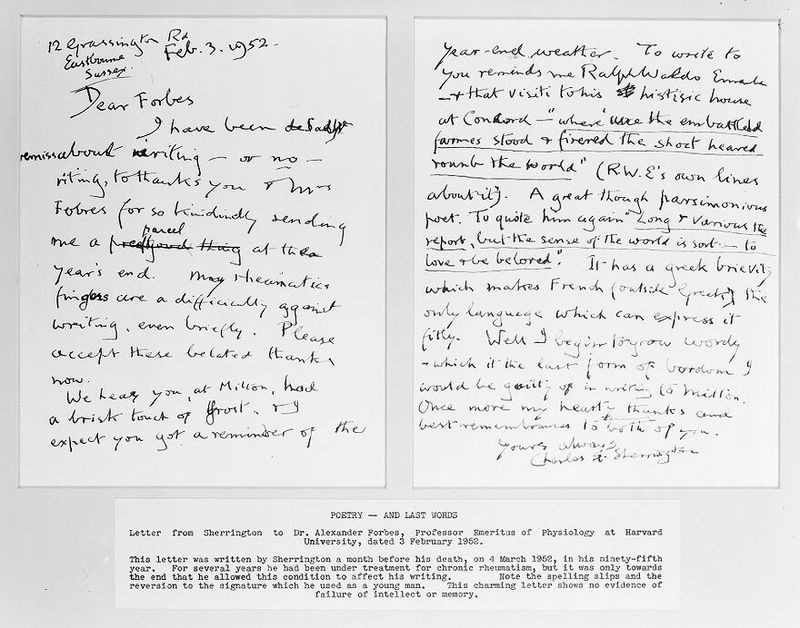 12 Grassington Rd
Eastbourne
Sussex.
Feb. 3. 1952.
Dear Forbes
I have been
remiss about writing — or no —
riting, to thanks you & Mrs
Fobres for so kindindly sending
me a parcel at the
year's end. My rheumatics
fingers are a difficully against
writing, even briefly. Please
accept these belated thanks
now.
We hear you, at Milton, had
a brisk touch of frost. & I
expect you got a reminder of the
year-end weather. To write to
you reminds me Ralph Waldo
— & that visiti to his histisic house
at Concord — "where the embattled
farmes stood & firered the shot heared
rounb the world" (R.W.E's own lines
about it). A great though parsimonious
poet. To quote him again "Long & various the
report, but the sense of the world is sort — to
love & be beloved". It has a greek brievity
which makes French (outside Greek) the
only language which can express it
fitly. Well I begin to grow wordy
— which it the last form of bordom I
would be guilty of in writing to Milton.
Once more my hearty thanks and
best remembrances to both of you.
Yours always
Charles S. Sherrington
POETRY — AND LAST WORDS
Letter from Sherrington to Dr. Alexander Forbes, Professor Emeritus of Physiology at Harvard
University, dated 3 February 1952.
This letter was written by Sherrington a month before his death, on 4 March 1952, in his ninety-fifth
year. For several years he had been under treatment for chronic rheumatism, but it was only towards
the end that he allowed this condition to affect his writing. Note the spelling slips and the
reversion to the signature which he used as a young man. This charming letter shows no evidence of
failure of intellect or memory.